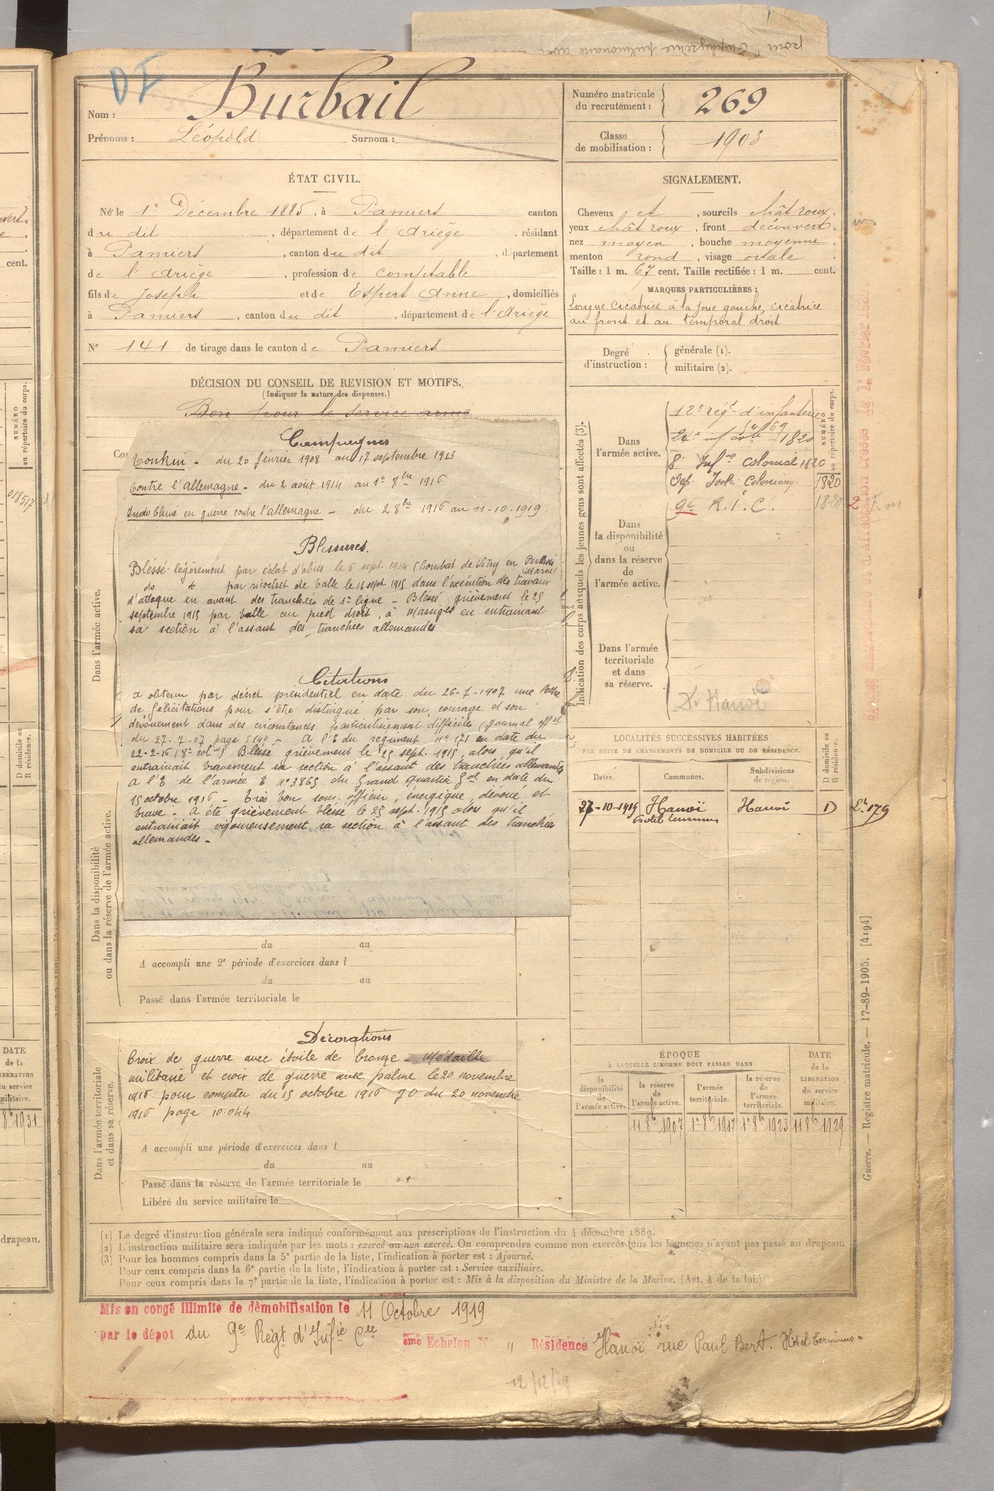 DI
Nom : Burbail
Prénoms : Léopold Surnom :
Numéro matricule du recrutement : 269
Classe de mobilisation : 1905
ÉTAT CIVIL.
Né le 1er Décembre 1885, à Pamiers canton
du dit, département de l'Ariège, résidant
à Pamiers, canton du dit, département
de l'Ariège, profession de comptable
fils de Joseph et de Espert Anne, domiciliés
à Pamiers, canton du dit, département de l'Ariège
N° 141 de tirage dans le canton de Pamiers
SIGNALEMENT.
Cheveux et, sourcils chât roux.
yeux chât roux, front découvert.
nez moyen, bouche moyenne
menton rond, visage ovale
Taille : 1 m. 67 cent. Taille rectifiée : 1 m. cent.
MARQUES PARTICULIÈRES :
Longue cicatrice à la joue gauche, cicatrice
au front et au temporal droit
Degré d'instruction : générale (1).
militaire (2).
DÉCISION DU CONSEIL DE REVISION ET MOTIFS.
(Indiquer la nature des dispenses.)
Bon pour le service armé
Campagnes
Tonkin - du 20 février 1908 au 17 septembre 1913
Contre l'Allemagne - du 2 août 1914 au 1er 8bre 1916
Indo Chine en guerre contre l'Allemagne - du 2 8bre 1916 au 11-10-1919.
Blessures.
Blessé légèrement par éclat d'obus le 6 sept. 1914 (Combat de Vitry en Perthois Marne)
do do par ricochet de balle le 14 sept. 1915 dans l'exécution des travaux
d'attaque en avant des tranchées de 1re ligne - Blessé grièvement le 25
septembre 1915 par balle au pied droit, à Massiges en entrainant
sa section à l'assaut des tranchées allemandes
Citations
a obtenu par décret présidentiel en date du 26-7-1907 une lettre
de félicitations pour s'être distingué par son courage et son
dévouement dans des circonstances particulièrement difficiles (Journal offel
du 27-7-07 page 5340 - A l'O du régiment n° 571 en date du
22-2-16 (8e col al) Blessé grièvement le 25 sept. 1915, alors qu'il
entrainait bravement sa section à l'assaut des tranchées allemandes
A l'O de l'armée O n° 3865 du Grand quartier Gal en date du
15 octobre 1916 - Très bon sous officier, énergique, dévoué et
brave - a été grièvement blessé le 25 sept. 1915 alors qu'il
entrainait vigoureusement sa section à l'assaut des tranchées
allemandes -
Dans l'armée active.
Dans la disponibilité ou dans la réserve de l'armée active.
du au
A accompli une 2e période d'exercices dans l
du au
Passé dans l'armée territoriale le
Décorations
Croix de guerre avec étoile de bronze - Médaille
militaire et croix de guerre avec palme le 20 novembre
1916 pour compter du 15 octobre 1916 JO du 20 novembre
1916 page 10.044
Dans l'armée territoriale et dans sa réserve.
A accompli une période d'exercices dans l
du au
Passé dans la réserve de l'armée territoriale le
Libéré du service militaire le
Indication des corps auxquels les jeunes gens sont affectés (3).
NUMÉRO au répertoire du corps.
Dans l'armée active.
12e régt d'infanterie
24e inf cole 1820
8e Infrie coloniale 1820
Dép. Isolés Coloniaux 1820
9e R.I.C. 1820
Dans la disponibilité ou dans la réserve de l'armée active.
Dans l'armée territoriale et dans sa réserve.
Hanoï
LOCALITÉS SUCCESSIVES HABITÉES
PAR SUITE DE CHANGEMENTS DE DOMICILE OU DE RÉSIDENCE.
Dates. Communes. Subdivisions de région. D domicile ou R résidence.
27-10-1919 Hanoï Hotel terminus Hanoï D
ÉPOQUE
À LAQUELLE L'HOMME DOIT PASSER DANS
la disponibilité de l'armée active.
la réserve de l'armée active.
l'armée territoriale.
la réserve de l'armée territoriale.
DATE de la LIBÉRATION de service militaire.
1er 8bre 1907 1er 8bre 1917 1er 8bre 1923 1er 8bre 1929
Guerre. — Registre matricule. — 17-89-1905. [4194]
(1) Le degré d'instruction générale sera indiqué conformément aux prescriptions de l'instruction du 4 décembre 1889.
(2) L'instruction militaire sera indiquée par les mots : exercé ou non exercé. On comprendra comme non exercés tous les hommes n'ayant pas passé au drapeau.
(3) Pour les hommes compris dans la 5e partie de la liste, l'indication à porter est : Ajourné.
Pour ceux compris dans la 6e partie de la liste, l'indication à porter est : Service auxiliaire.
Pour ceux compris dans la 7e partie de la liste, l'indication à porter est : Mis à la disposition du Ministre de la Marine. (Art. 4 de la loi.)
Mis en congé illimité de démobilisation le 11 Octobre 1919
par le dépôt du 9e Régt d'Infie Cle ème Echelon N° " Résidence Hanoï rue Paul Bert. Hôtel terminus.